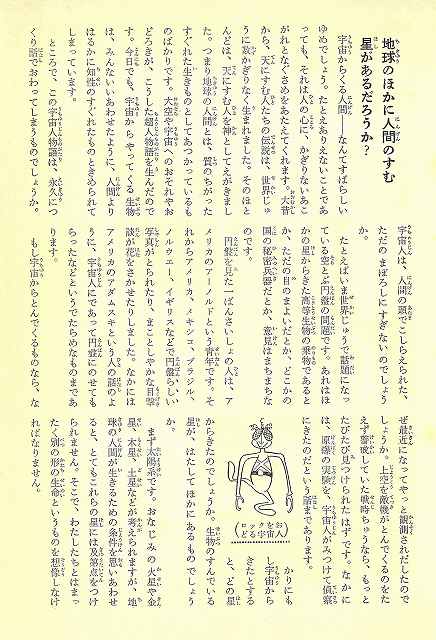 地球のほかに人間のすむ
星があるだろうか？
宇宙からくる人間――なんてすばらしい
ゆめでしょう。たとえありえないことであ
っても、それは人の心に、かぎりないあこ
がれとなぐさめをあたえてくれます。大昔
から、天にすむ人たちの伝説は、世界じゅ
うに数かぎりなく生まれました。そのほと
んどは、天にすむ人を神としてえがきまし
た。つまり地球の人間とは、質のちがった
すぐれた生きものとしてあつかっているも
のばかりです。大空や宇宙へのおそれやお
どろきが、こうした超人物語を生んだので
す。今日でも、宇宙からやってくる生物
は、みんないいあわせたように、人間より
はるかに知性のすぐれたものときめられて
しまっています。
ところで、この宇宙人物語は、永久につ
くり話でおわってしまうものでしょうか。
宇宙人は、人間の頭でこしらえられた、
ただのまぼろしにすぎないのでしょう
か。
たとえばいま世界じゅうで話題になっ
ている空とぶ円盤の問題です。あれはほ
かの星からきた高等生物の乗物であると
か、ただの目のまよいだとか、どこかの
国の秘密兵器だとか、意見はまちまちな
のです。
円盤を見た一ばんさいしょの人は、ア
メリカのアーノルドという青年です。そ
れからアメリカ、メキシコ、ブラジル、
ノルウエー、イギリスなどで円盤らしい
写真がとられたり、まことしやかな目撃
談が花をさかせたりしました。なかには
アメリカのアダムスキという人の話のよ
うに、宇宙人にであって円盤にのせても
らったなどというでたらめなものまであ
ります。
もし宇宙からとんでくるものなら、な
ぜ最近になってやっと観測されだしたので
しょうか。上空を敵機がとんでくるのをた
えず警戒していた戦時ちゅうなら、もっと
たびたび見つけられたはずです。なかに
は、原爆の実験を、宇宙人がみつけて偵察
にきたのだという話まであります。
かりにも
し宇宙から
きたとする
と、どの星
からきたのでしょうか。生物のすんでいる
星が、はたしてほかにあるものでしょう
か。
まず太陽系です。おなじみの火星や金
星、木星、土星などが考えられますが、地
球の人間が生きるための条件を思いあわせ
ると、とてもこれらの星には及第点をつけ
られません。そこで、わたしたちとはまっ
たく別の形の生命というものを想像しなけ
ればなりません。
（ロックをお
どる宇宙人）